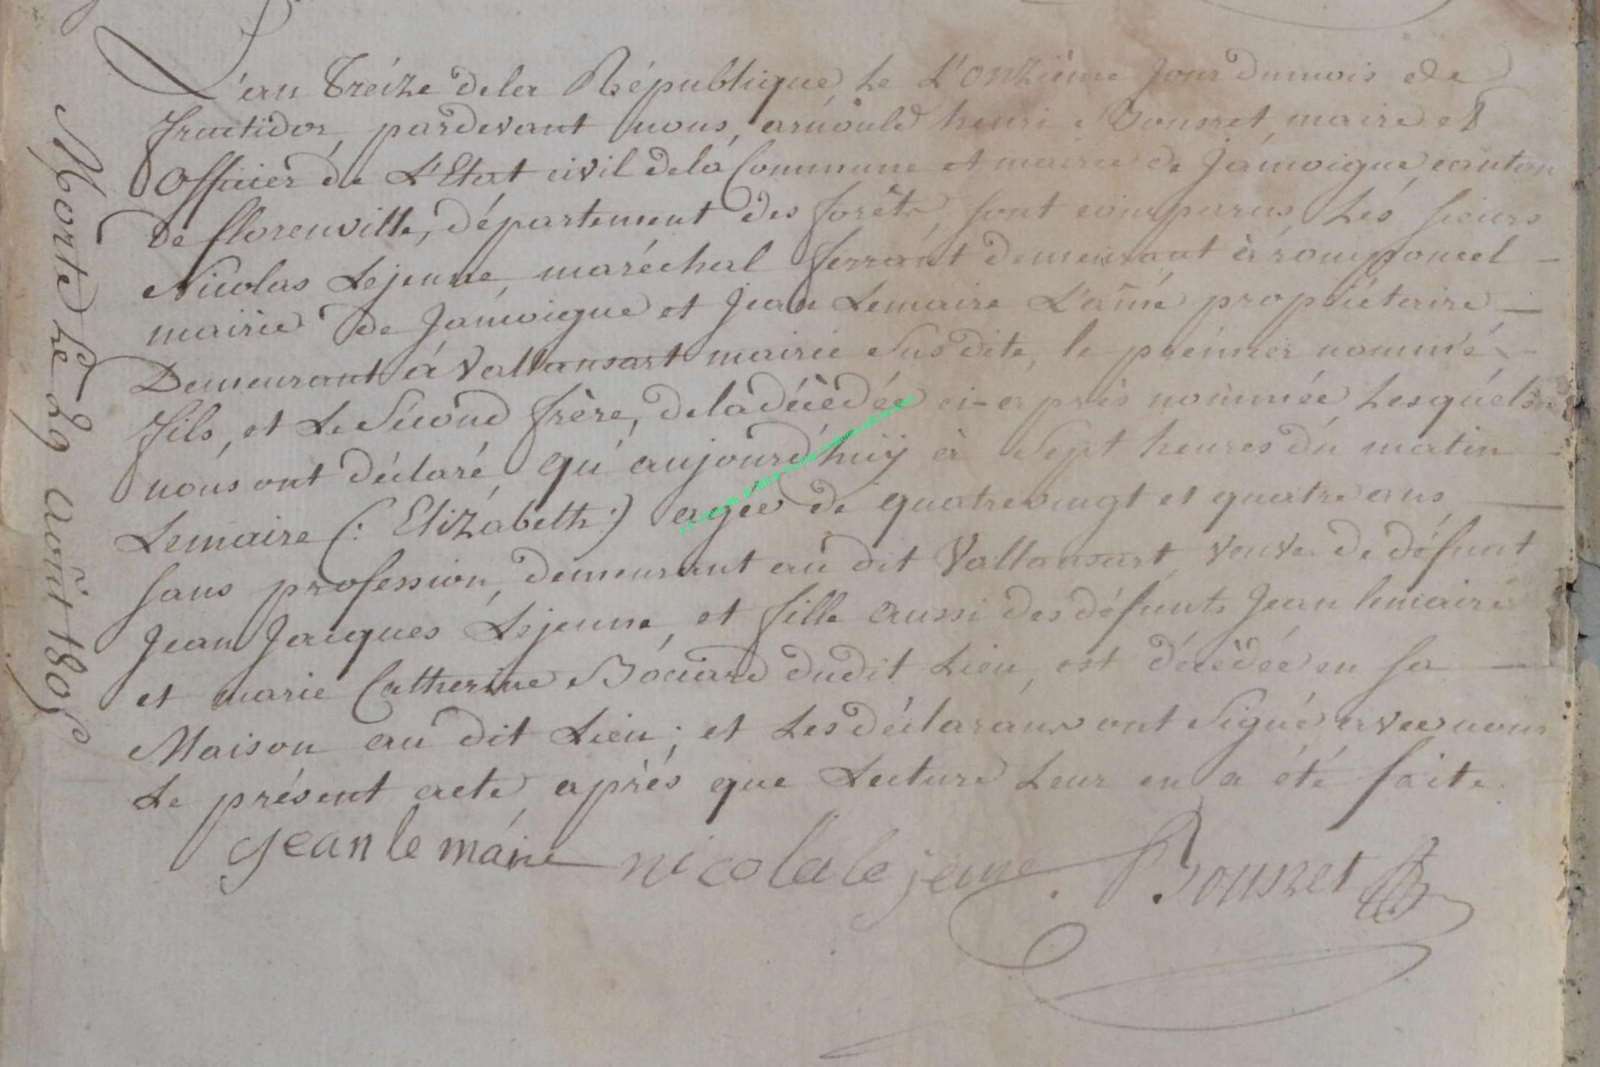 L'an Treize de la République, Le L'onzième jour du mois de
fructidor, pardevant nous, arnould henri Bousret, maire et
Officier de L'Etat civil de la Commune et mairie de Jamoigne canton
de florenville, département des forêts, sont comparus Les sieurs
Nicolas Lejeune, maréchal ferrant demeurant à romponcel
mairie de Jamoigne et Jean Lemaire L'ainé propriétaire
Demeurant à Vallansart mairie Susdite, le prémier nommé
fils, et Le Sécond frère, de la décèdée ci-après nommée, Lesquéls
nous ont déclaré, qu'aujourd'huÿ à Sept heures du matin
Lemaire (: Elizabeth :) agée de quatrevingt et quatre ans,
sans profession, demeurant au dit Vallansart, veuve de défunt
Jean Jacques Lejeune, et fille aussi des défunts Jean lemaire
et marie Catherine Bociard dudit Lieu, est décèdée en sa
Maison au dit Lieu; et Les déclarans ont Signé avec nous
Le présent acte, après que Lecture Leur en a été faite.
jean le maire nicola le jeune. Bousret
Morte Le 29 août 1805